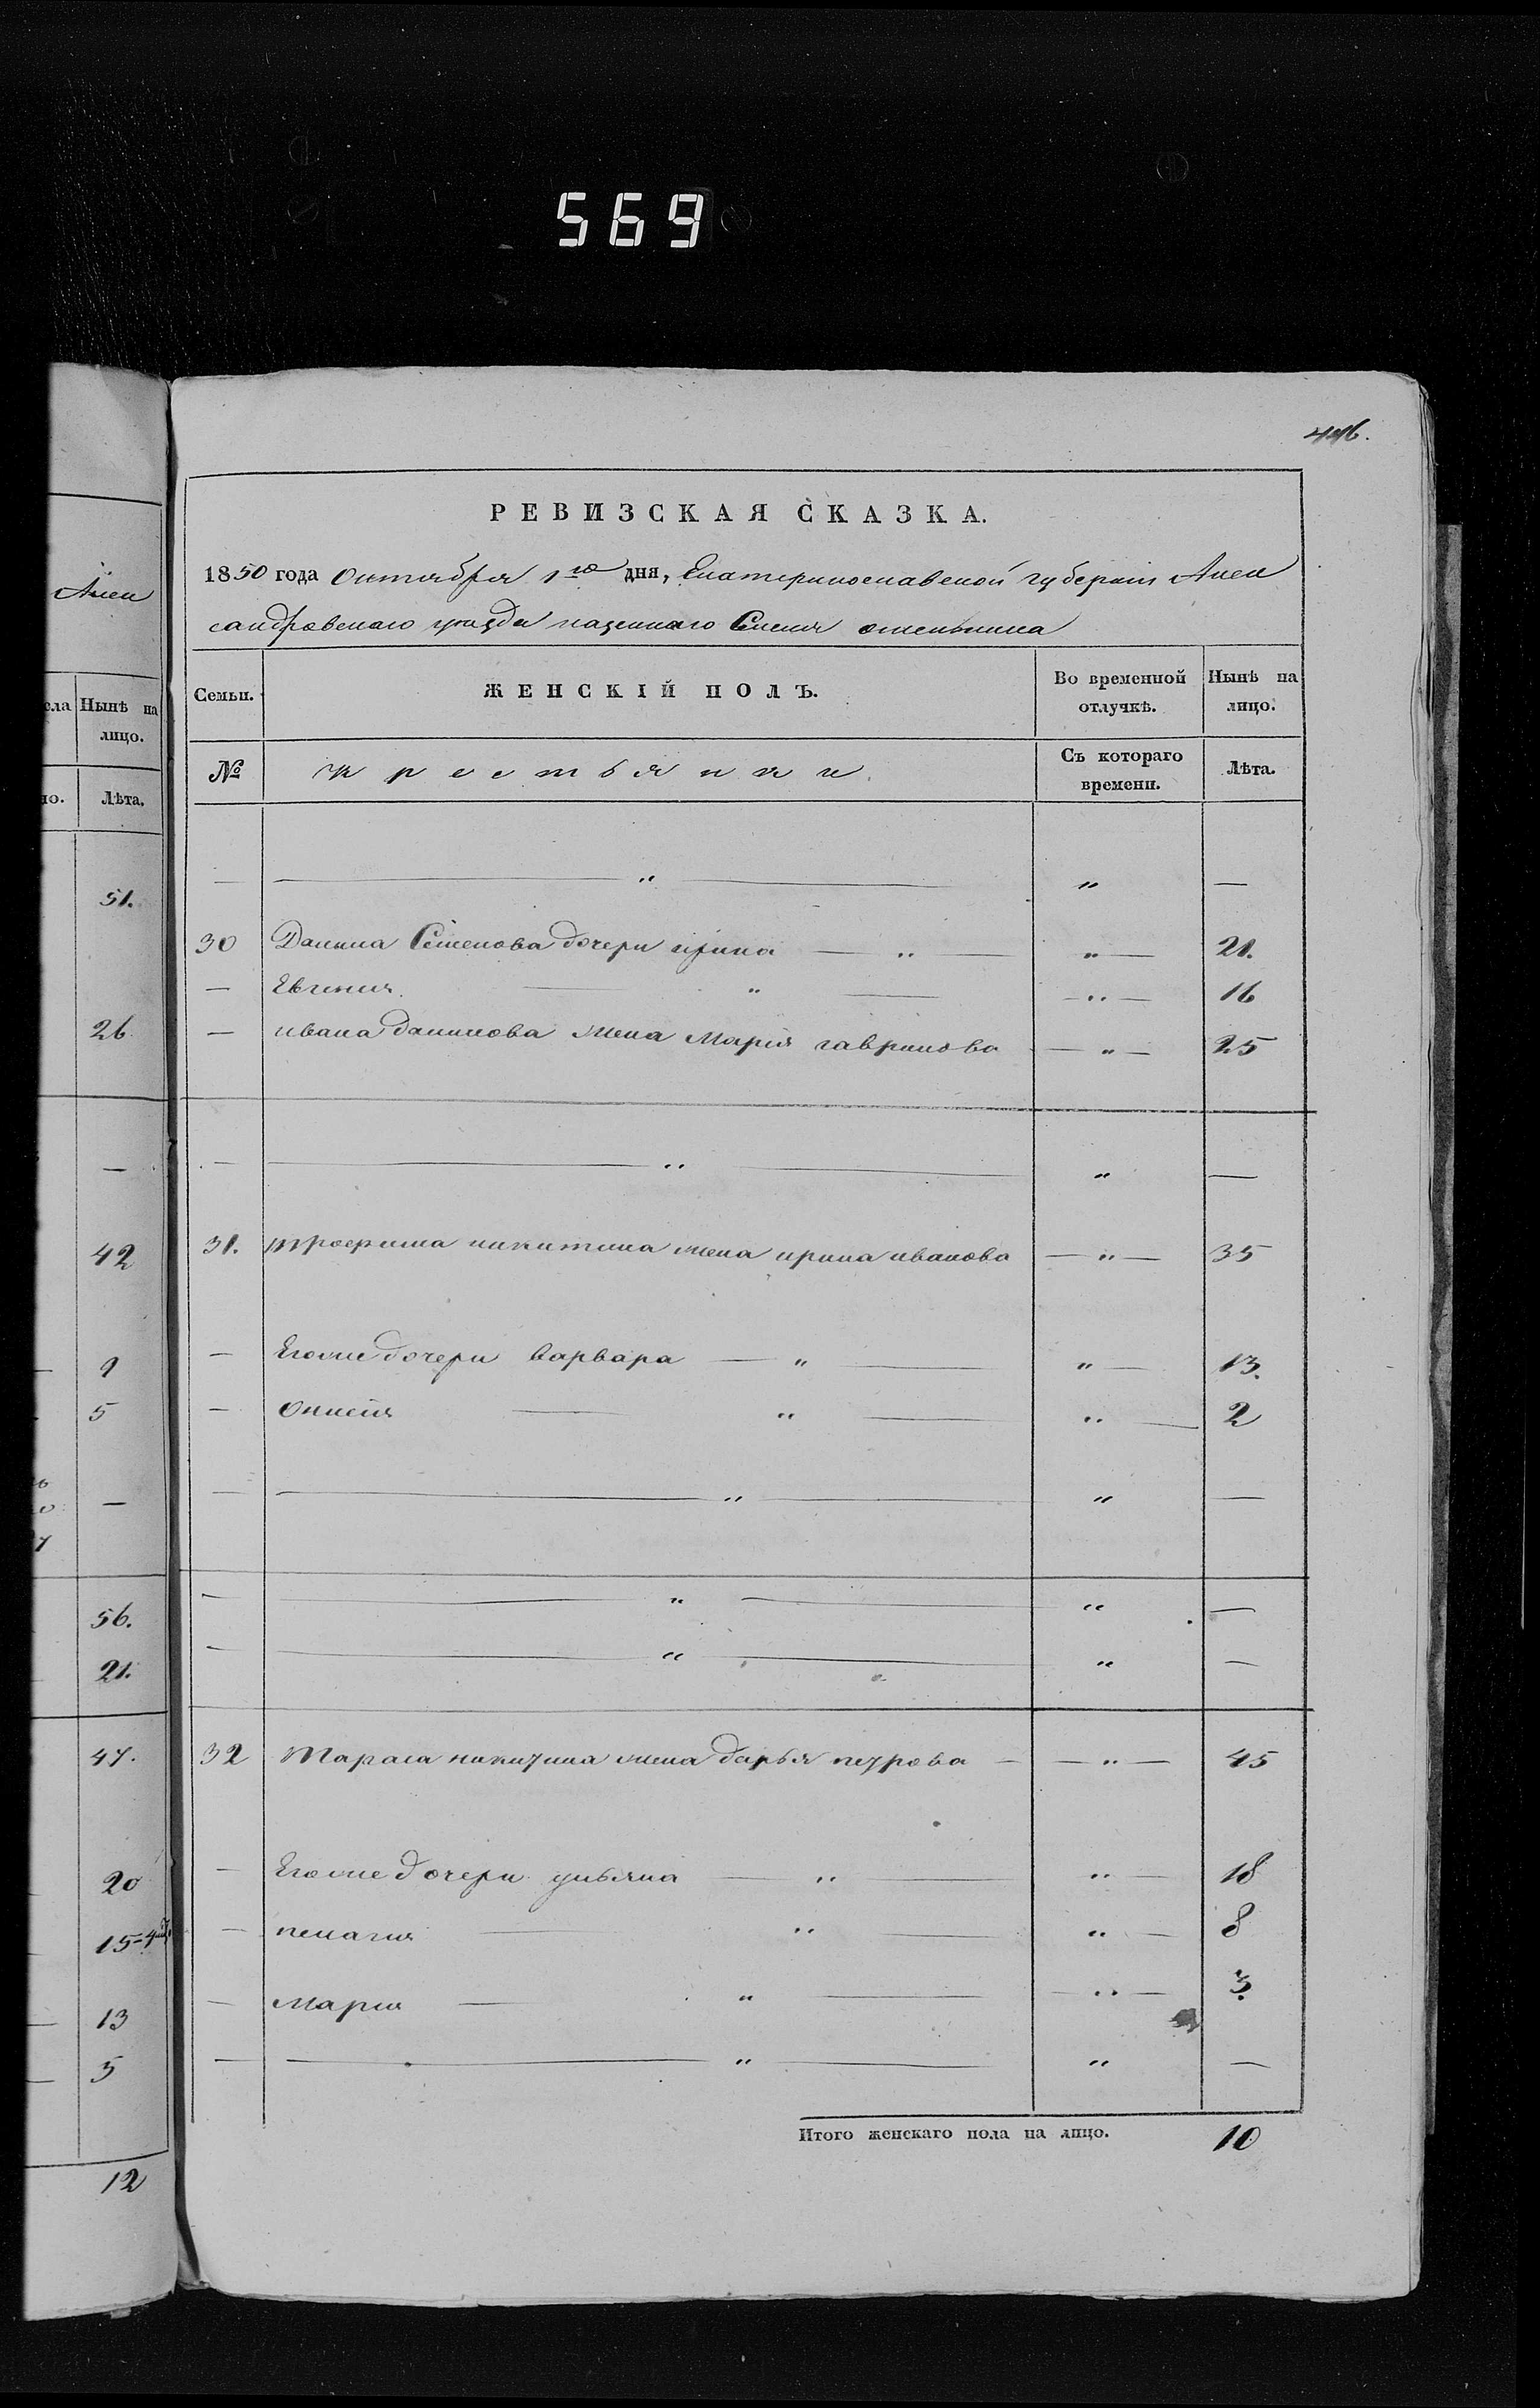 569
446.
РЕВИЗСКАЯ СКАЗКА.
1850 года Октября 1го дня, Екатеринославской губерніи Алек
сандровскаго уѣзда казеннаго Селенія
Семьи. ЖЕНСКІЙ ПОЛЪ. Во временной отлучкѣ. Нынѣ на лицо.
№ Крестьянки. Съ котораго времени. Лѣта.
— — " — " —
30 Данила Семенова дочери ирина — " — " — 21.
— Евгения — " — — " — 16
— ивана данилова жена Марія гаврилова — " — 25
— — " — " —
31. трофима никитина жена ирина иванова — " — 35
— Егоже дочери варвара — " — " — 13.
— — " — " — 2
— — " — " —
— — " — " —
— — " — " —
32 Тараса никитина жена дарья петрова — — " — 45
— Егоже дочери ульяна — " — " — 18
— пелагия — " — " — 8
— Мария — " — — " — 3.
— — " — " —
Итого женскаго пола на лицо. 10
Алек
сла Нынѣ на лицо.
но. Лѣта.
51.
26
—
42
9
5
—
56.
21.
47.
20
15
13
5
12